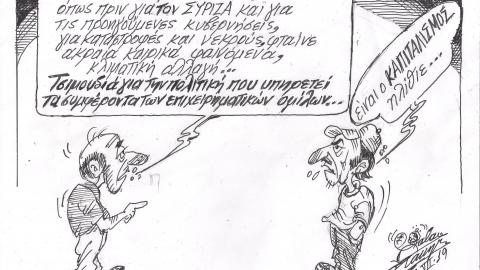 όπως πριν για τον ΣΥΡΙΖΑ και για
τις προηγούμενες κυβερνήσεις,
για καταστροφές και νεκρούς, φταίνε
ακραία καιρικά φαινόμενα,
κλιματική αλλαγή...
Τσιμουδιά για την πολιτική που υπηρετεί
τα συμφέροντα των επιχειρηματικών ομίλων...
είναι ο ΚΑΠΙΤΑΛΙΣΜΟΣ
ηλίθιε...